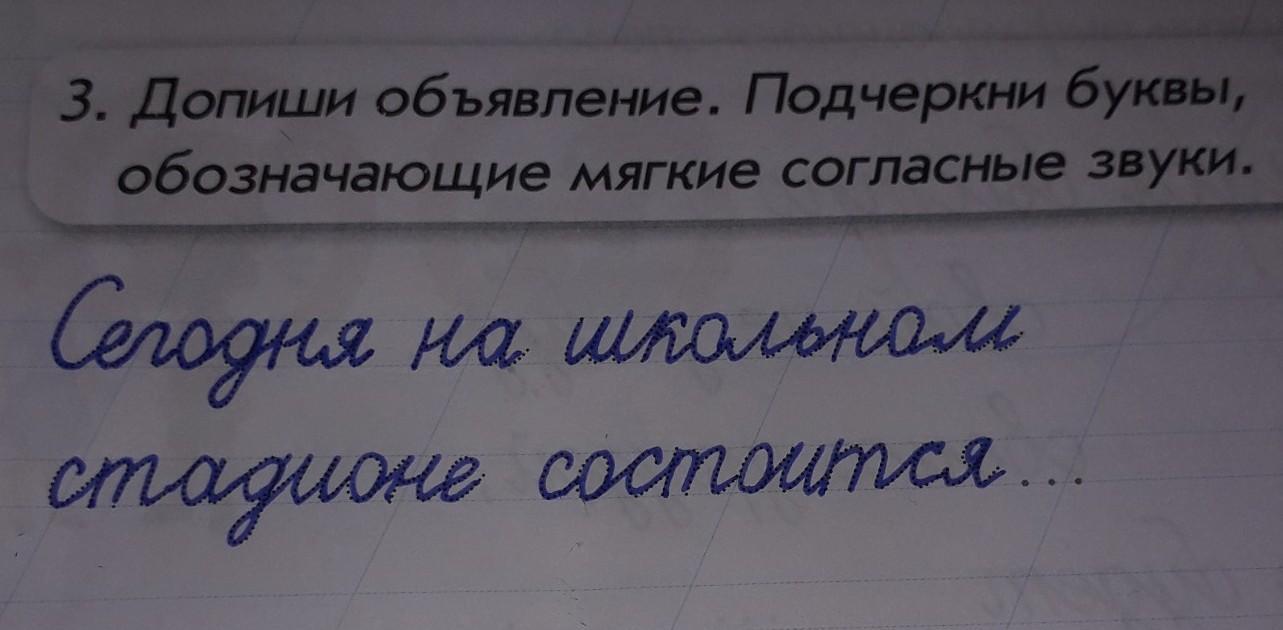 3. Допиши объявление. Подчеркни буквы,
обозначающие мягкие согласные звуки.
Сегодня на школьном
стадионе состоится...